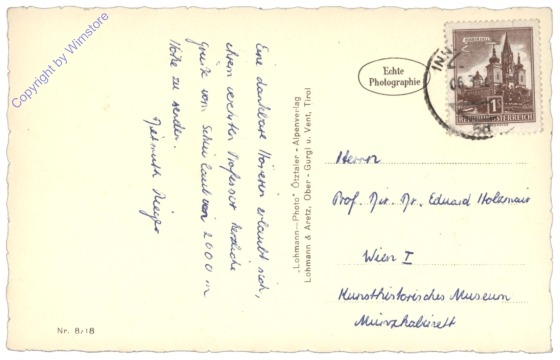 Copyright by Wimstore
Eine dankbare Hörerin erlaubt sich,
ihrem verehrten Professor herzliche
Grüße vom Schiurlaub von 2000 m
Höhe zu senden.
"Lohmann—Photo" Ötztaler - Alpenverlag
Lohmann & Aretz, Ober - Gurgl u. Vent, Tirol
Echte
Photographie
MARIAZELL
1S
REPUBLIK ÖSTERREICH
INN
06.
Herrn
Prof. Dir. Dr. Eduard Holzmair
Wien I
Kunsthistorisches Museum
Münzkabinett
Nr. 8/18